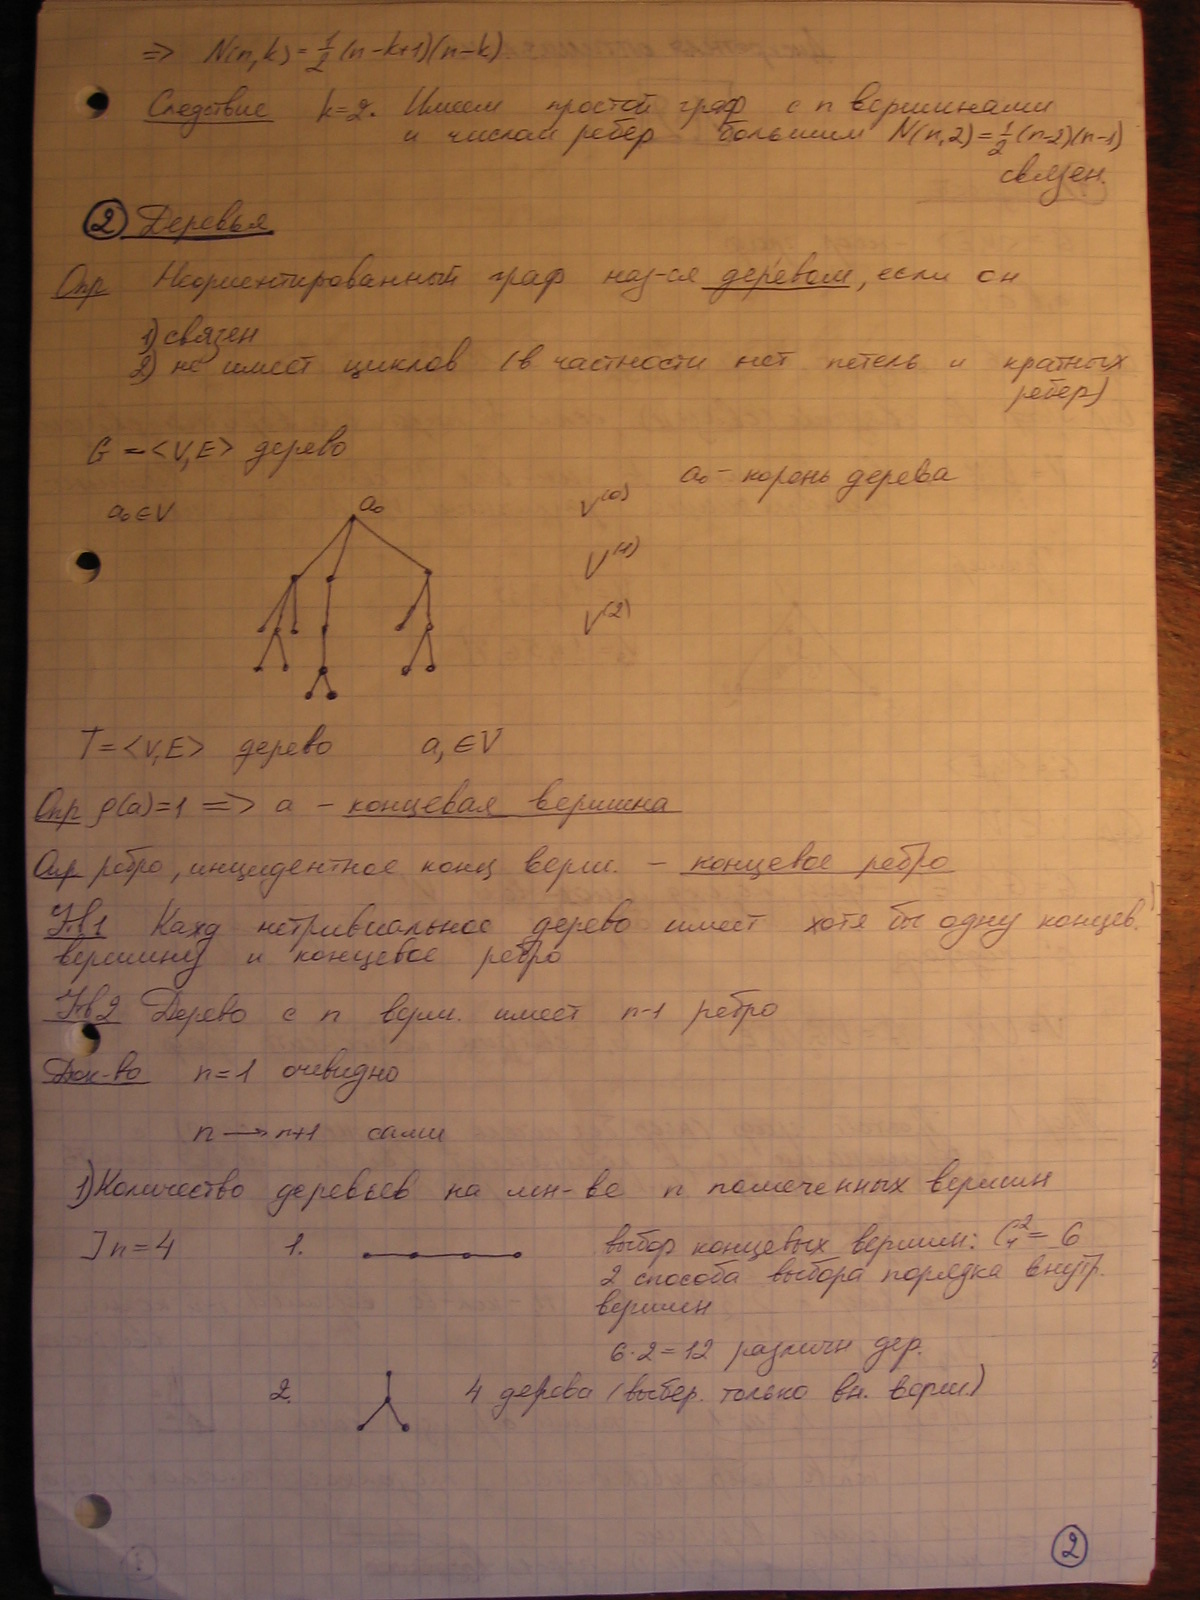 => N(n,k) = 1/2 (n-k+1)(n-k)
Следствие k=2. Имеем простой граф с n вершинами
и числом ребер большим N(n,2) = 1/2 (n-2)(n-1)
связен.
② Деревья
Опр Неориентированный граф наз-ся деревом, если он
1) связен
2) не имеет циклов (в частности нет петель и кратных
ребер)
G = <V,E> дерево
a₀ - корень дерева
a₀ ∈ V
a₀
V⁽⁰⁾
V⁽¹⁾
V⁽²⁾
T = <V,E> дерево a₁ ∈ V
Опр ρ(a)=1 => a - концевая вершина
Опр ребро, инцидентное конц верш. - концевое ребро
Утв1 Кажд нетривиальное дерево имеет хотя бы одну концев.
вершину и концевое ребро
Утв2 Дерево с n верш. имеет n-1 ребро
Док-во n=1 очевидно
n → n+1 сами
1) Количество деревьев на мн-ве n помеченных вершин
] n=4 1.
выбор концевых вершин: C₄² = 6
2 способа выбора порядка внутр.
вершин
6·2=12 различн дер.
2. 4 дерева (выбер. только вн. верш.)
②